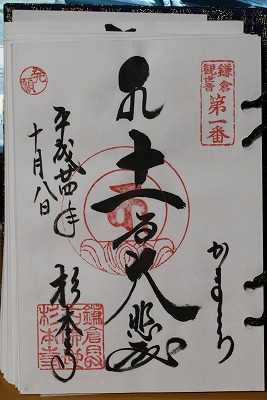 鎌倉
観世音
第一番
かまくら
十一面大悲殿
発願
平成廿四年
十月八日
杉本寺